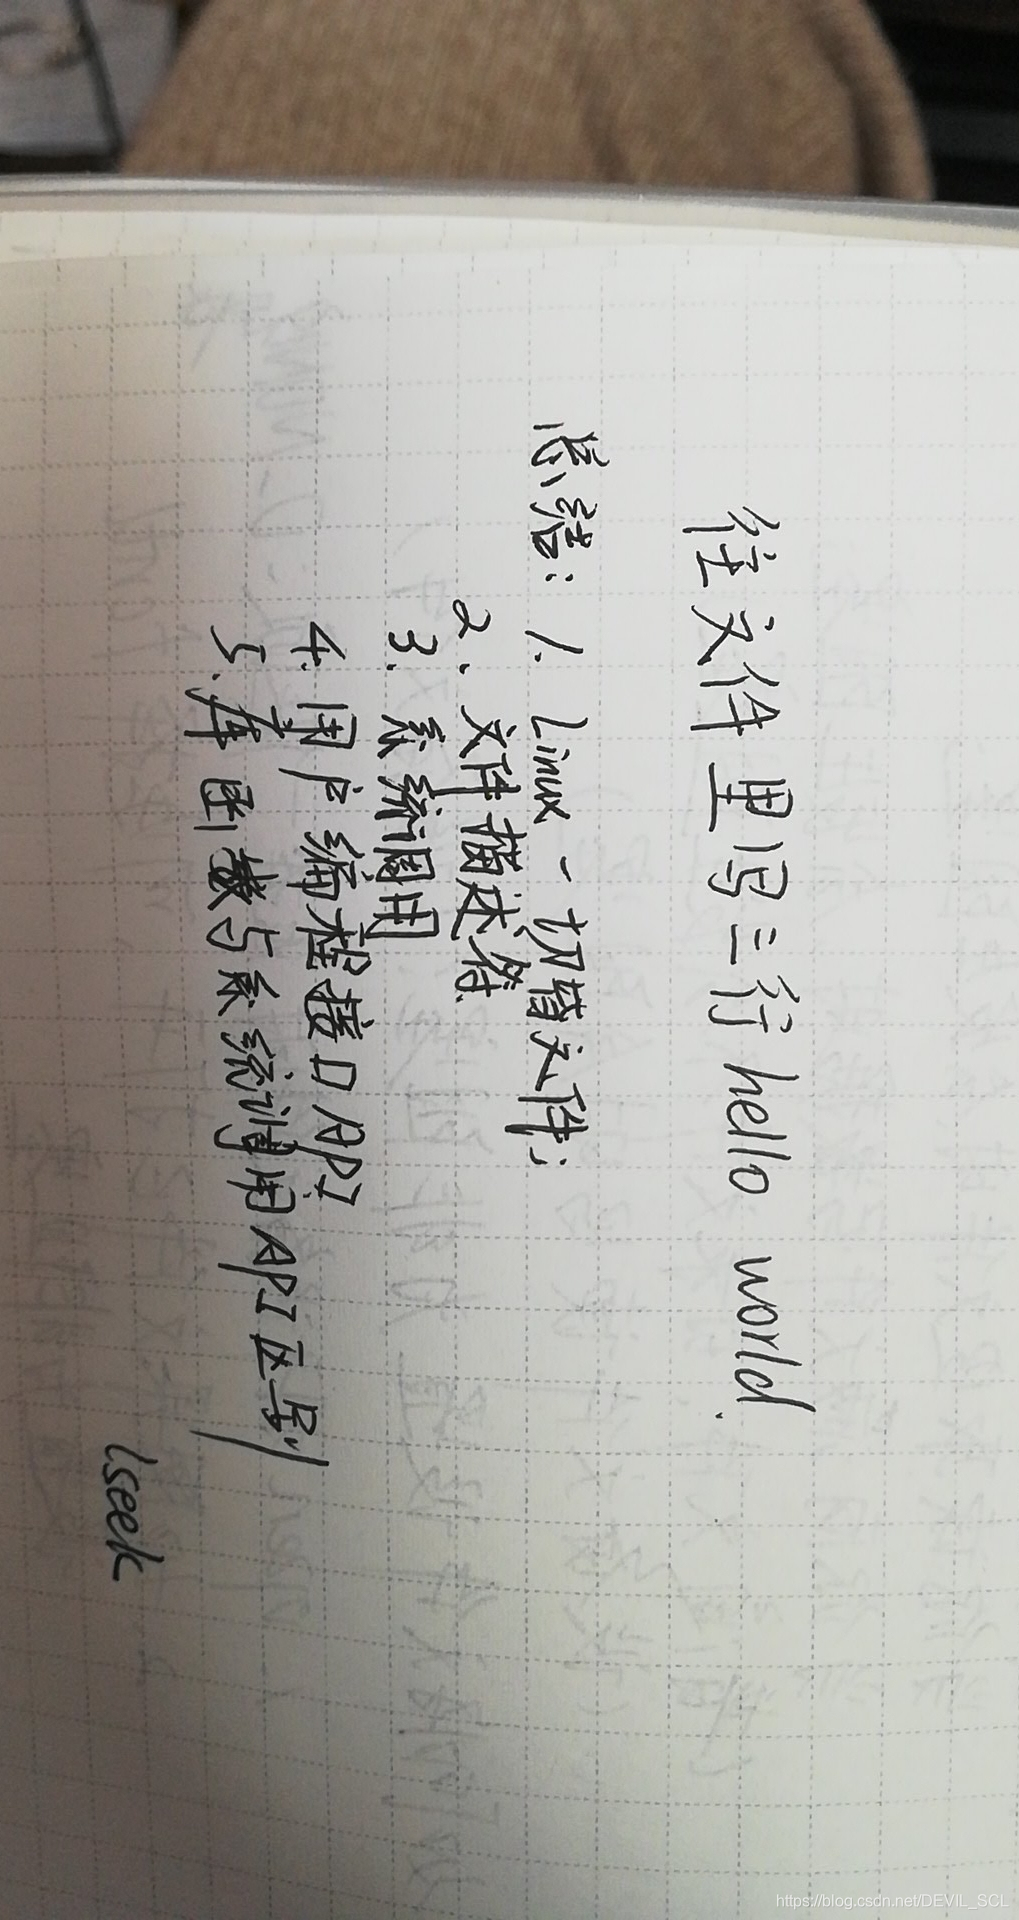 往文件里写三行 hello world.
总结: 1. Linux 一切皆文件;
2. 文件描述符.
3. 系统调用
4. 用户编程接口 API
5. 库函数与系统调用API区别
lseek
https://blog.csdn.net/DEVIL_SCL